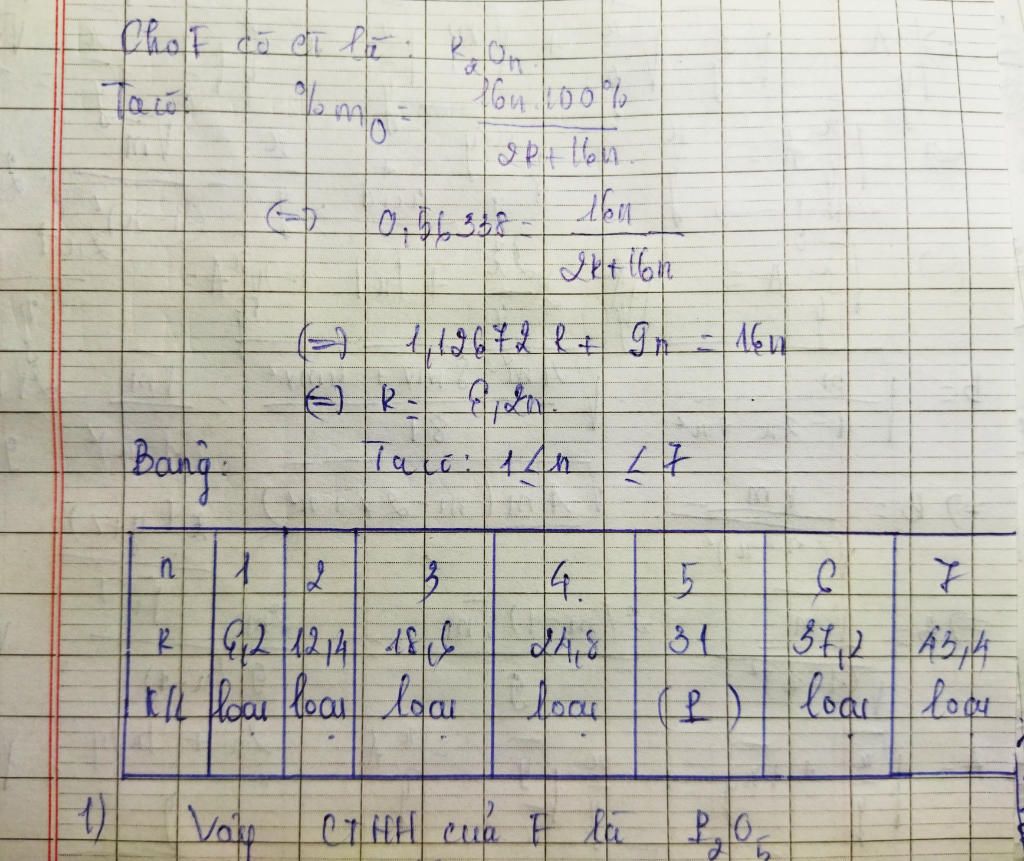 Cho F có CT là: R₂Oₙ
Ta có: %mO = 16n.100% / 2R+16n.
(=) 0,56338 = 16n / 2R+16n
(=) 1,12672 R + 9n = 16n
(=) R = 6,2n.
Bảng: Ta có: 1 ≤ n ≤ 7
n 1 2 3 4. 5 6 7
R 6,2 12,4 18,6 24,8 31 37,2 43,4
K/L loại loại loại loại (P) loại loại
1) Vậy CTHH của F là P₂O₅